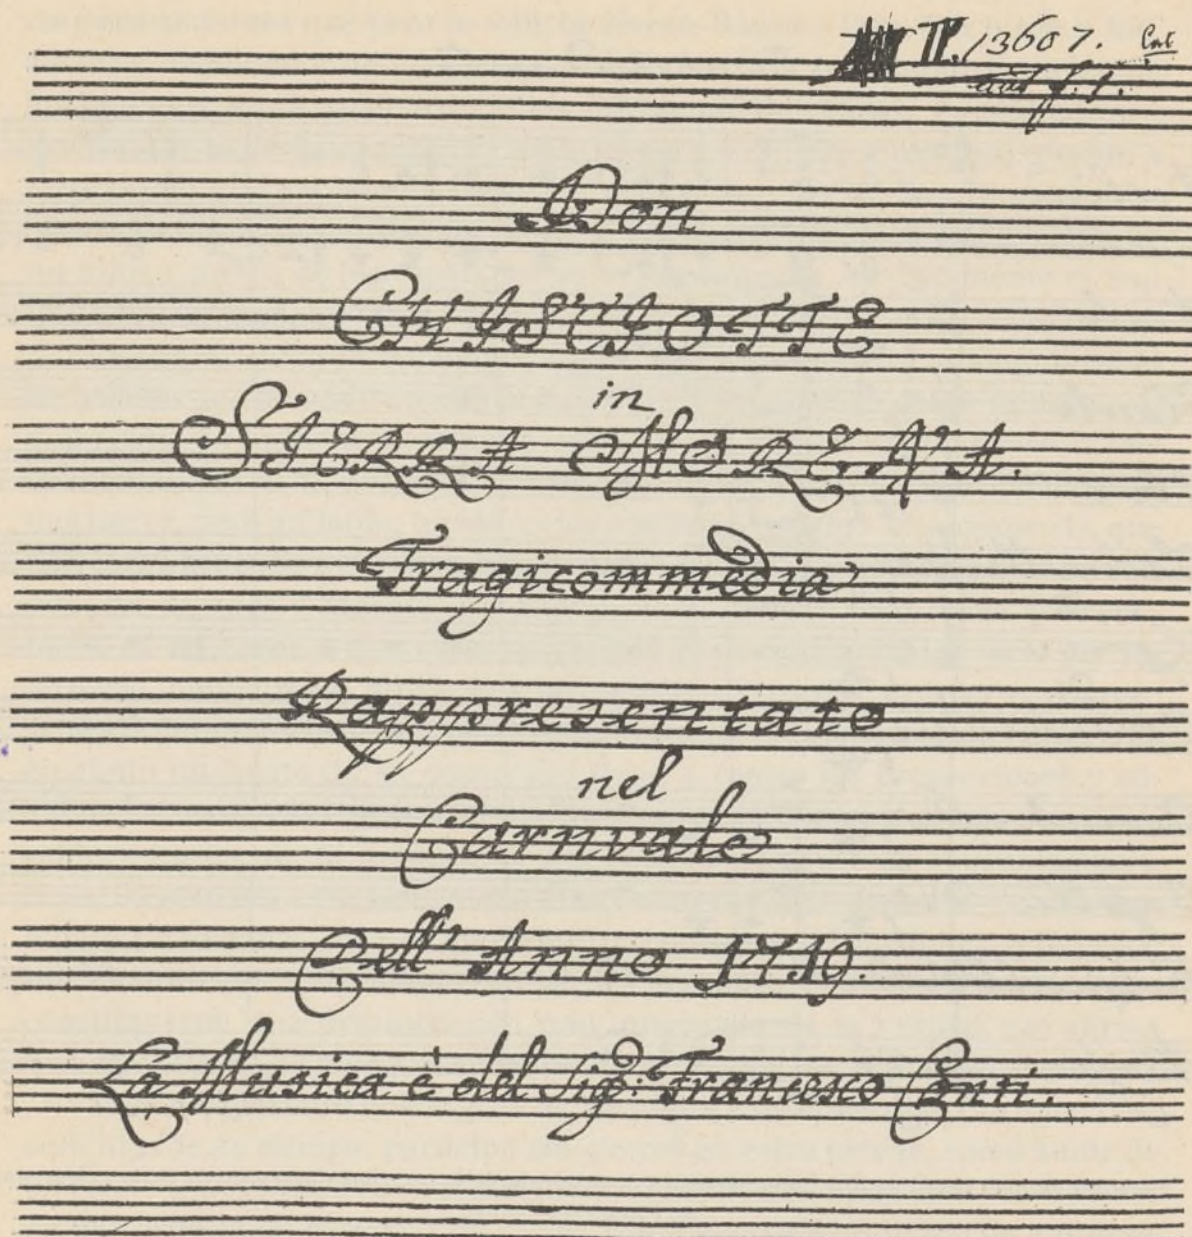 II. 13607.
Don
CHISCIOTTE
in
SIERRA MORENA.
Tragicommedia
Rappresentato
nel
Carnvale
Dell' Anno 1719.
La Musica è del Sig.: Francesco Conti.